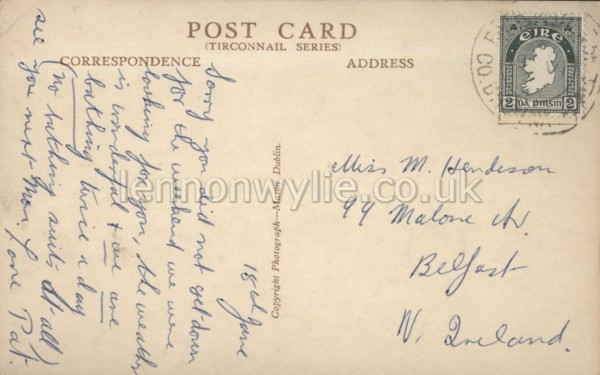 POST CARD
(TIRCONNAIL SERIES)
CORRESPONDENCE
ADDRESS
18th June
Sorry you did not get down
for the weekend we were
looking for you, the weather
is wonderful & we are
bathing twice a day
(No bathing suits at all)
see you next Mon. Love Pat.
Copyright Photograph—Mason Dublin.
EIRE
2 DÁ PINGIN 2
CO.
Miss M. Henderson
99 Malone Av.
Belfast
N. Ireland.
lennonwylie.co.uk